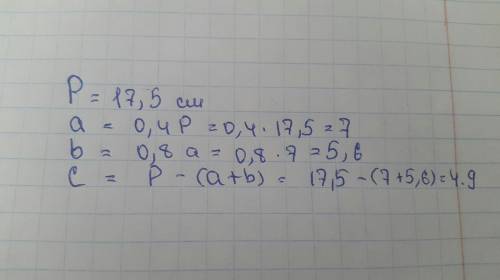 P = 17,5 см
a = 0,4 P = 0,4 · 17,5 = 7
b = 0,8 a = 0,8 · 7 = 5,6
c = P - (a+b) = 17,5 - (7+5,6) = 4.9